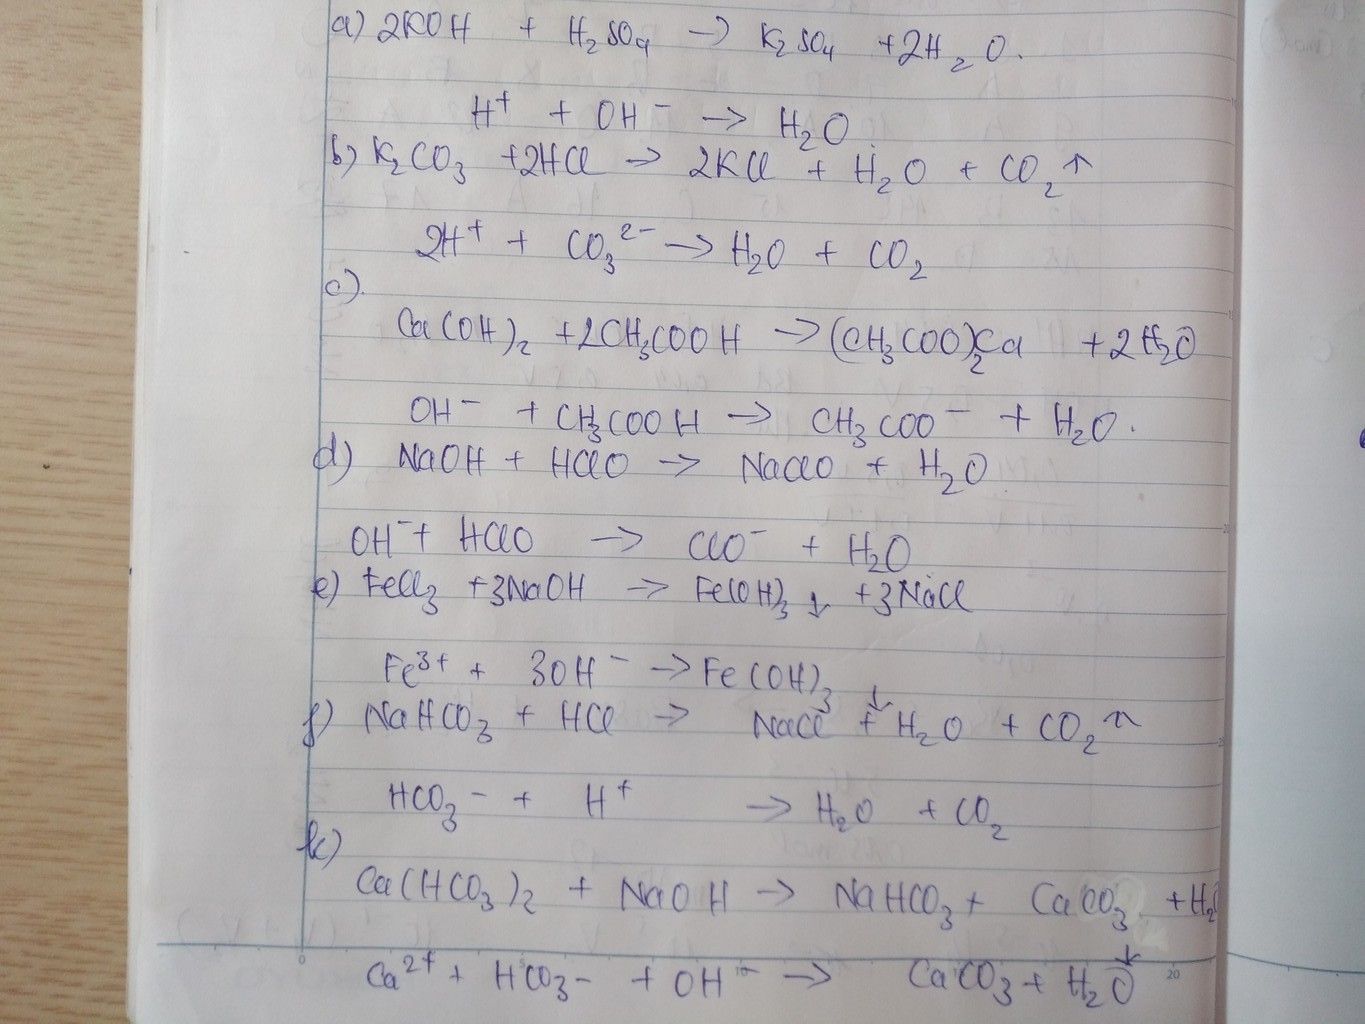 a) 2KOH + H₂SO₄ → K₂SO₄ + 2H₂O.
H⁺ + OH⁻ → H₂O
b) K₂CO₃ + 2HCl → 2KCl + H₂O + CO₂↑
2H⁺ + CO₃²⁻ → H₂O + CO₂
c).
Ca(OH)₂ + 2CH₃COOH → (CH₃COO)₂Ca + 2H₂O
OH⁻ + CH₃COOH → CH₃COO⁻ + H₂O.
d) NaOH + HClO → NaClO + H₂O
OH⁻ + HClO → ClO⁻ + H₂O
e) FeCl₃ + 3NaOH → Fe(OH)₃↓ + 3NaCl
Fe³⁺ + 3OH⁻ → Fe(OH)₃↓
f) NaHCO₃ + HCl → NaCl + H₂O + CO₂↑
HCO₃⁻ + H⁺ → H₂O + CO₂
k)
Ca(HCO₃)₂ + NaOH → NaHCO₃ + CaCO₃↓ + H₂
Ca²⁺ + HCO₃⁻ + OH⁻ → CaCO₃ + H₂O
0 20